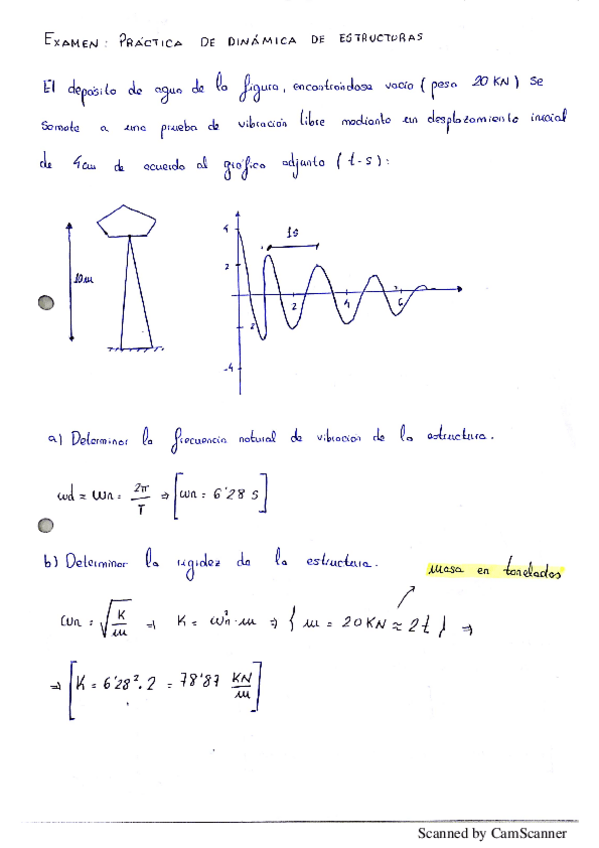 EXAMEN: PRÁCTICA DE DINÁMICA DE ESTRUCTURAS
El depósito de agua de la figura, encontrándose vacío (peso 20 KN) se
somete a una prueba de vibración libre mediante un desplazamiento inicial
de 4cm de acuerdo al gráfico adjunto (t-s):
10m
4
2
2
-4
1s
2
4
6
a) Determinar la frecuencia natural de vibración de la estructura.
wd = wn = 2π/T ⇒ [wn = 6'28 s]
b) Determinar la rigidez de la estructura.
masa en toneladas
wn = √(K/m) ⇒ K = wn²·m ⇒ { m = 20KN ≈ 2t } ⇒
⇒ [K = 6'28²·2 = 78'87 KN/m]
Scanned by CamScanner